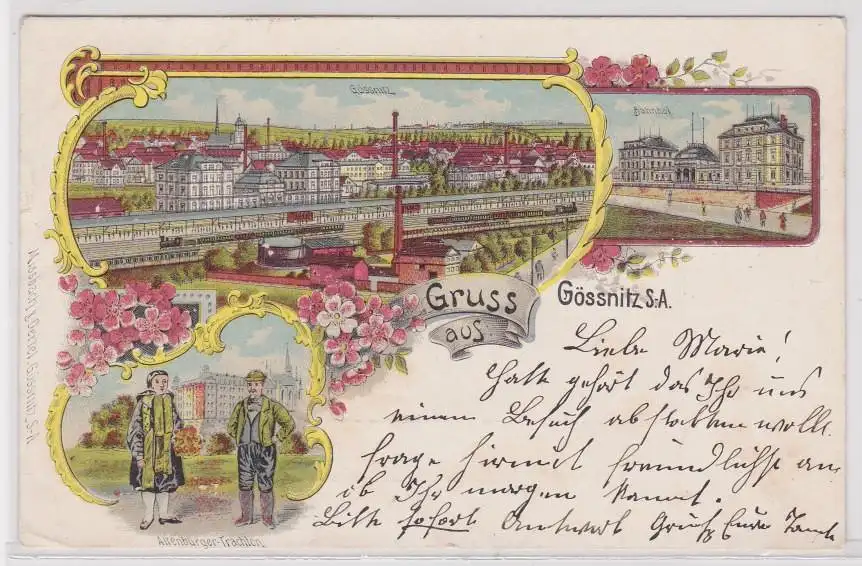 Gössnitz
Bahnhof
Gruss
aus
Gössnitz S.-A.
Liebe Marie!
Habe gehört das Ihr uns
einen Besuch abstatten wollt.
frage hiermit freundlichst an
ob Ihr morgen kommt.
Bitte sofort Antwort Gruß Eure Tante
Altenburger-Trachten.